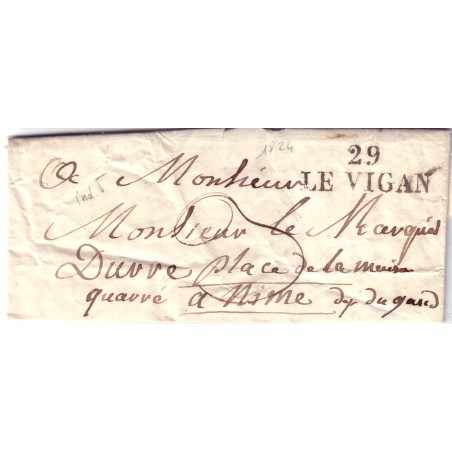 1824
29
LE VIGAN
ind 5
A Monsieur
Monsieur le Marquis
Durre place de la
quarré a Nime du gard